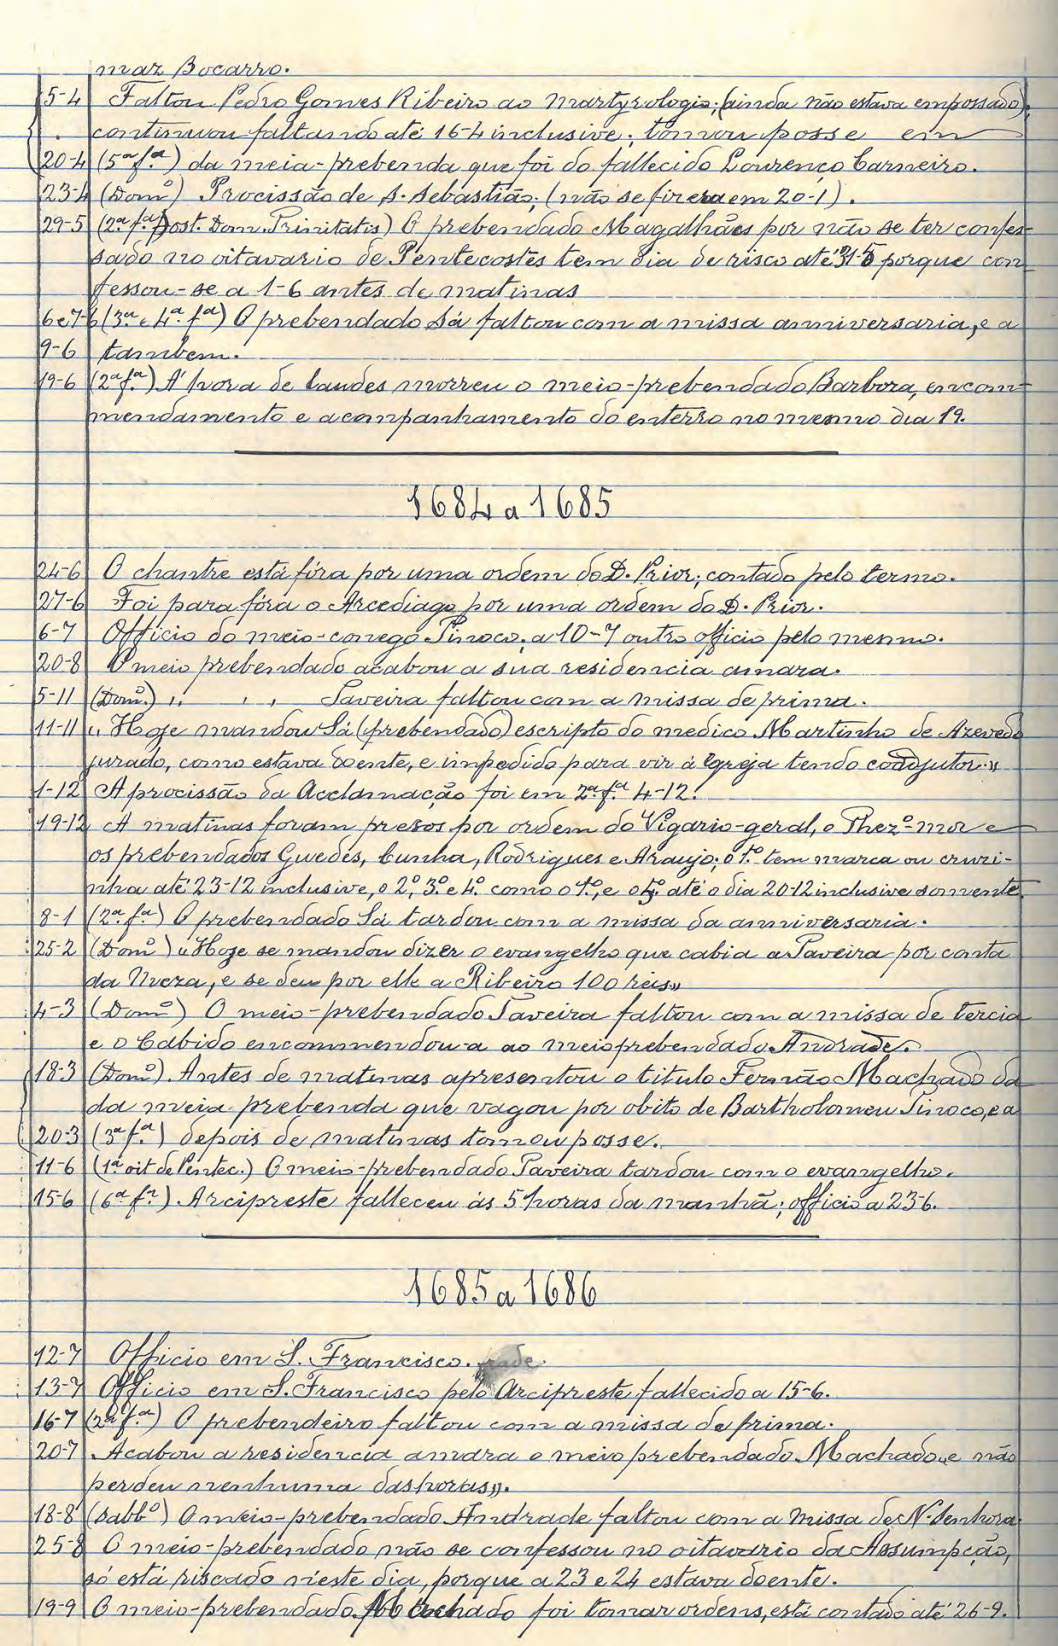 maz Bocarro.
5-4 Faltou Pedro Gomes Ribeiro ao Martyrologio; (ainda não estava empossado),
continuou faltando até 16-4 inclusive; tomou posse em
20-4 (5ª fª) da meia-prebenda que foi do fallecido Lourenço Carneiro.
23-4 (Domº) Procissão de S. Sebastião; (não se fizera em 20-1).
29-5 (2ª fª post. Dom. Trinitatis) O prebendado Magalhães por não se ter confes-
sado no oitavario de Pentecostés tem dia de risco até 31-5 porque con
fessou-se a 1-6 antes de matinas
6 e 7-6 (3ª e 4ª fª) O prebendado Sá faltou com a missa anniversaria, e a
9-6 tambem.
19-6 (2ª fª) Á hora de laudes morreu o meio-prebendado Barbora, encom-
mendamento e acompanhamento do enterro no mesmo dia 19.
1684 a 1685
24-6 O chantre está fóra por uma ordem do D. Prior; contado pelo termo.
27-6 Foi para fóra o Arcediago por uma ordem do D. Prior.
6-7 Officio do meio-conego Tinoco; a 10-7 outro officio pelo mesmo.
20-8 O meio prebendado acabou a sua residencia amara.
5-11 (Domº) ,, ,, Taveira faltou com a missa de prima.
11-11 "Hoje mandou Sá (prebendado) escripto do medico Martinho de Azevedo
jurado, como estava doente, e impedido para vir á Igreja tendo coadjutor."
1-12 A procissão da Acclamação foi em 2ª fª 4-12.
19-12 A matinas foram prezos por ordem do Vigario-geral, o Thezº-mor e
os prebendados Guedes, Cunha, Rodrigues e Araujo; o 1º tem marca ou cruzi-
nha até 23-12 inclusive, o 2º, 3º e 4º como o 1º, e o 5º até o dia 20-12 inclusive somente.
8-1 (2ª fª) O prebendado Sá tardou com a missa da anniversaria.
25-2 (Domº) "Hoje se mandou dizer o evangelho que cabia a Taveira por conta
da Meza, e se deu por elle a Ribeiro 100 réis"
4-3 (Domº) O meio-prebendado Taveira faltou com a missa de tercia
e o Cabido encommendou-a ao meio prebendado Andrade.
18-3 (Domº) Antes de matinas apresentou o titulo Fernão Machado da
da meia prebenda que vagou por obito de Bartholomeu Tinoco, e a
20-3 (3ª fª) depois de matinas tomou posse.
11-6 (1ª oit de Pentec.) O meio-prebendado Taveira tardou com o evangelho.
15-6 (6ª fª) Arcipreste falleceu ás 5 horas da manhã; officio a 23-6.
1685 a 1686
12-7 Officio em S. Francisco.
13-7 Officio em S. Francisco pelo Arcipreste fallecido a 15-6.
16-7 (2ª fª) O prebendeiro faltou com a missa de prima.
20-7 Acabou a residencia amara o meio prebendado Machado "e não
perdeu nenhuma das horas".
18-8 (Sabbº) O meio-prebendado Andrade faltou com a missa de N. Senhora
25-8 O meio-prebendado não se confessou no oitavario da Assumpção,
só está riscado n'este dia, porque a 23 e 24 estava doente.
19-9 O meio-prebendado Machado foi tomar ordens, está contado até 26-9.